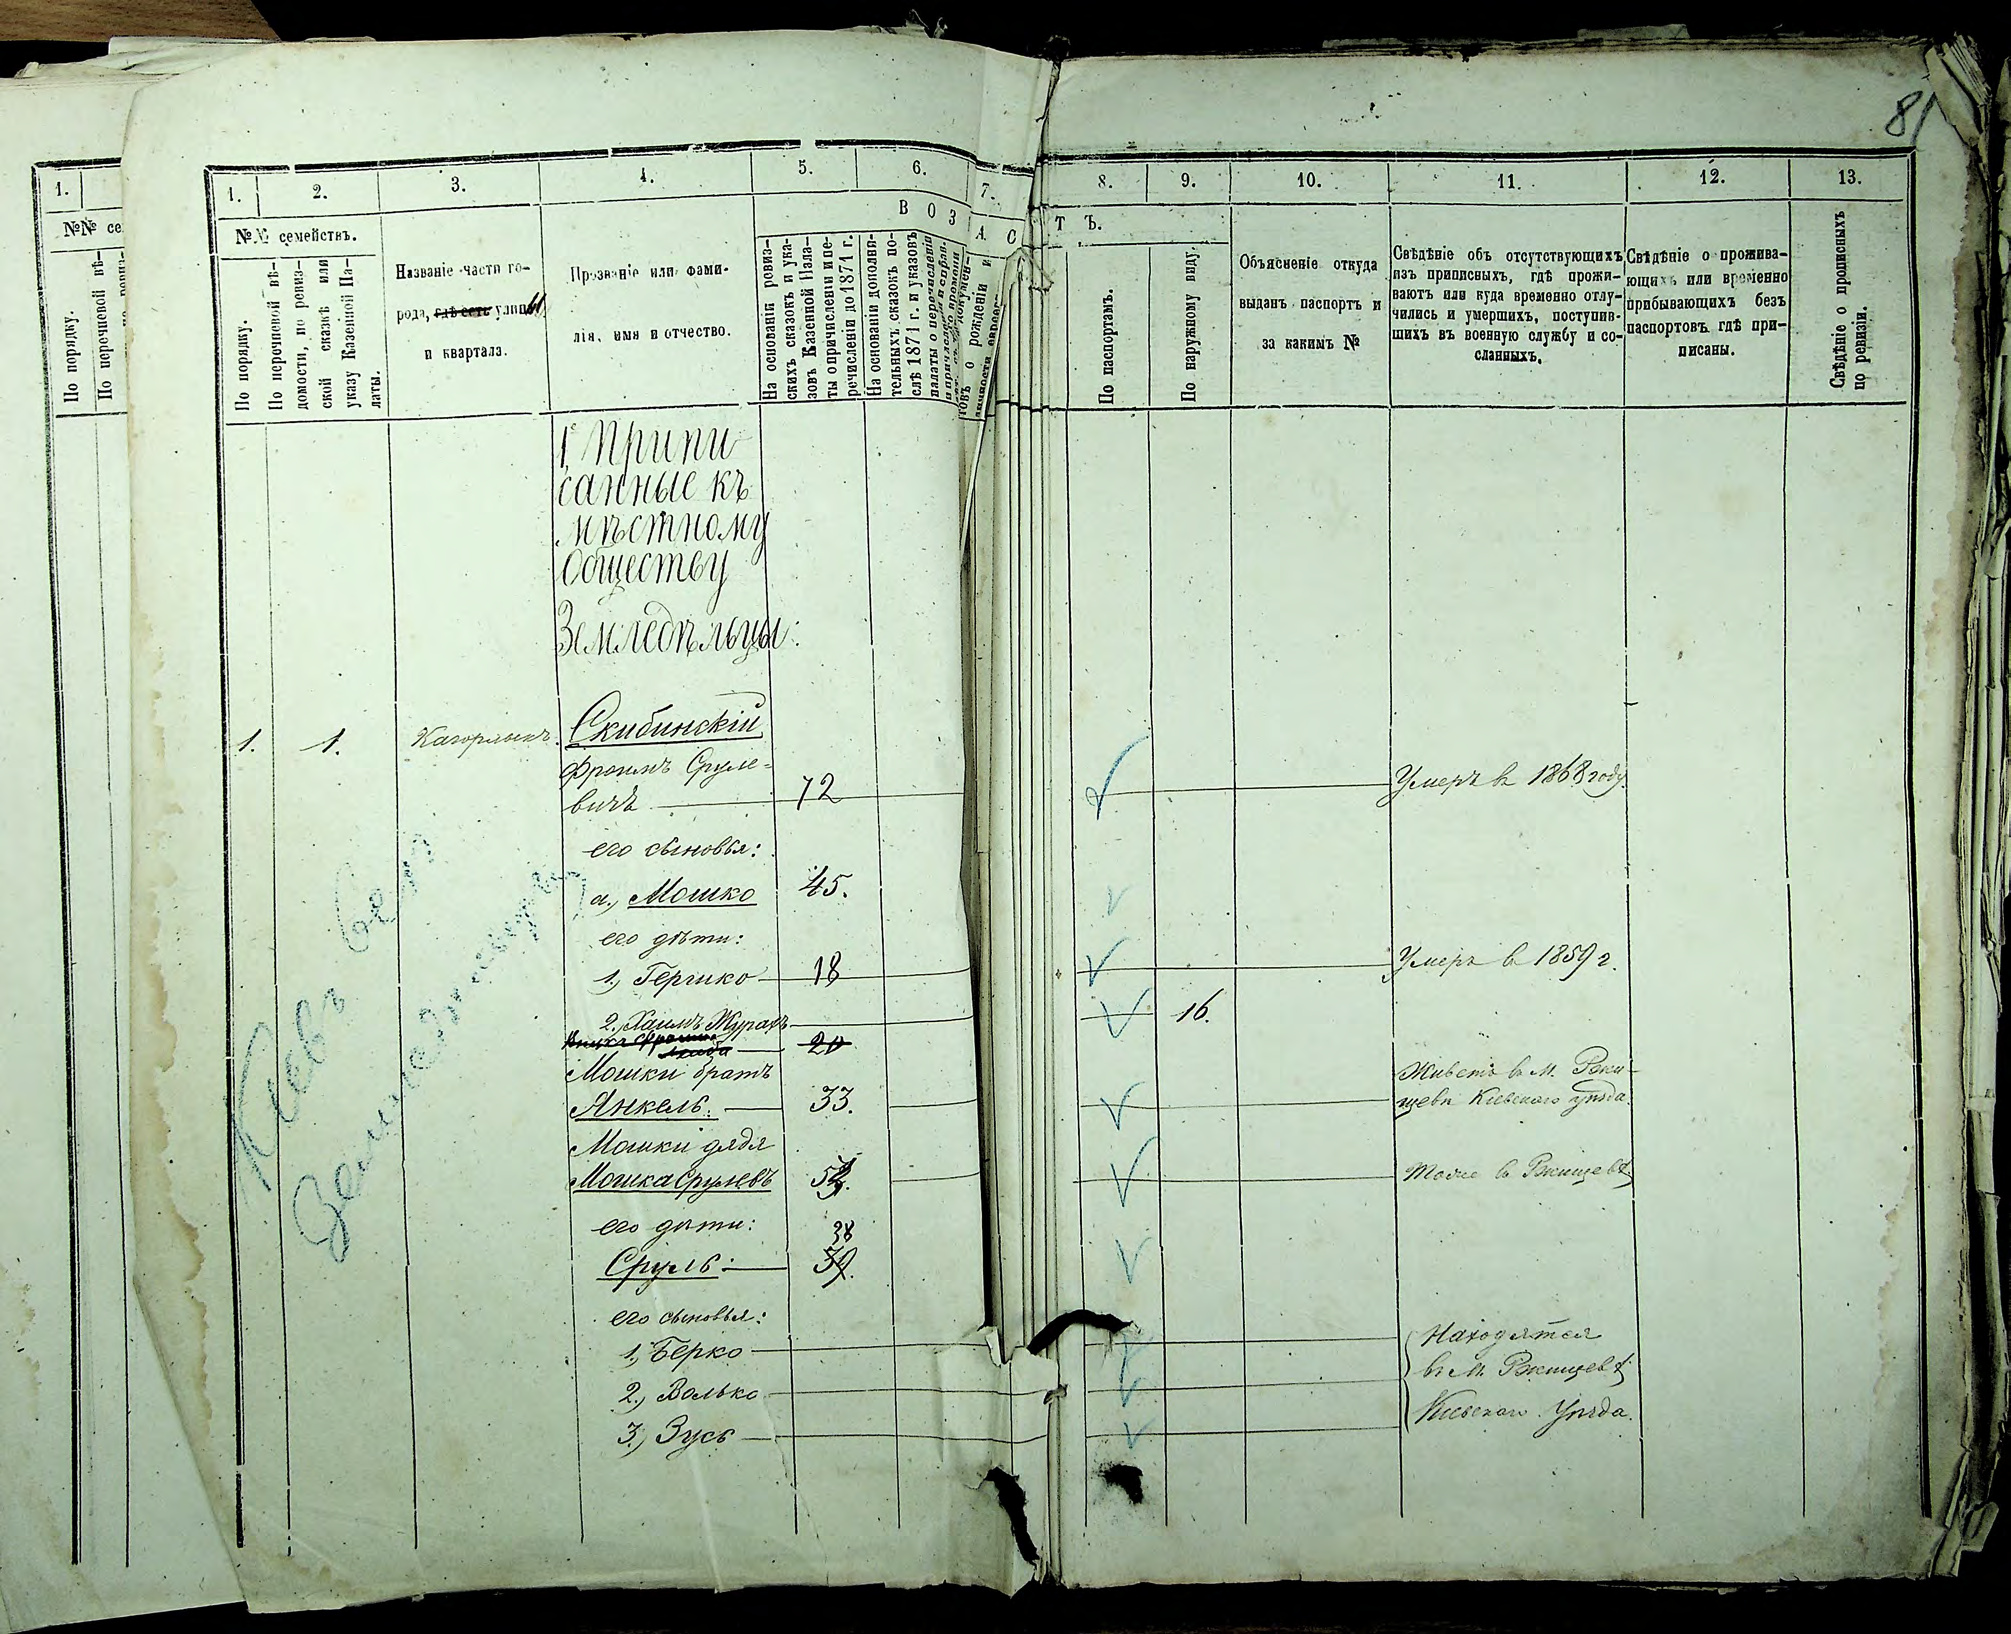 81
1.
№№ се
По порядку.
По перечневой вѣ-
1. 2. 3. 4. 5. 6. 7. 8. 9. 10. 11. 12. 13.
№№ семействъ.
По порядку.
По перечневой вѣ-
домости, по ревиз-
ской сказкѣ или
указу Казенной Па-
латы.
Названіе части го-
рода, гдѣ есть улицы
и квартала.
Прозваніе или фами-
лія, имя и отчество.
В О З
Р А С Т Ъ.
На основаніи ревиз-
скихъ сказокъ и ука-
зовъ Казенной Пала-
ты о причисленіи и пе-
речисленіи до 1871 г.
На основаніи дополни-
тельныхъ сказокъ по-
слѣ 1871 г. и указовъ
палаты о перечисленіи
По паспортамъ.
По наружному виду.
Объясненіе откуда
выданъ паспортъ и
за какимъ №
Свѣдѣніе объ отсутствующихъ
изъ приписныхъ, гдѣ прожи-
ваютъ или куда временно отлу-
чились и умершихъ, поступив-
шихъ въ военную службу и со-
сланныхъ.
Свѣдѣніе о прожива-
ющихъ или временно
прибывающихъ безъ
паспортовъ гдѣ при-
писаны.
Свѣдѣніе о прописныхъ
по ревизіи.
1, Припи
санные къ
мѣстному
Обществу
Земледѣльцы:
1. 1. Кагорлыкъ. Скибинскій
Фроимъ Сруле-
вичъ 72 Умеръ в 1868 году.
его сыновья:
а., Мошко 45.
его дѣти:
1., Гершко 18 Умеръ в 1859 г.
2., Хаимъ 16.
20
Мошки братъ
Янкель. 33. Живетъ в М. Ржи-
щевѣ Кіевского уѣзда.
Мошки дядя
Мошка Срулевъ Тоже в Ржищевѣ
его дѣти: 38
Сруль: 39.
его сыновья:
1., Берко Находятся
2., Волько в М. Ржищевѣ
3., Зусь Кіевского Уѣзда.